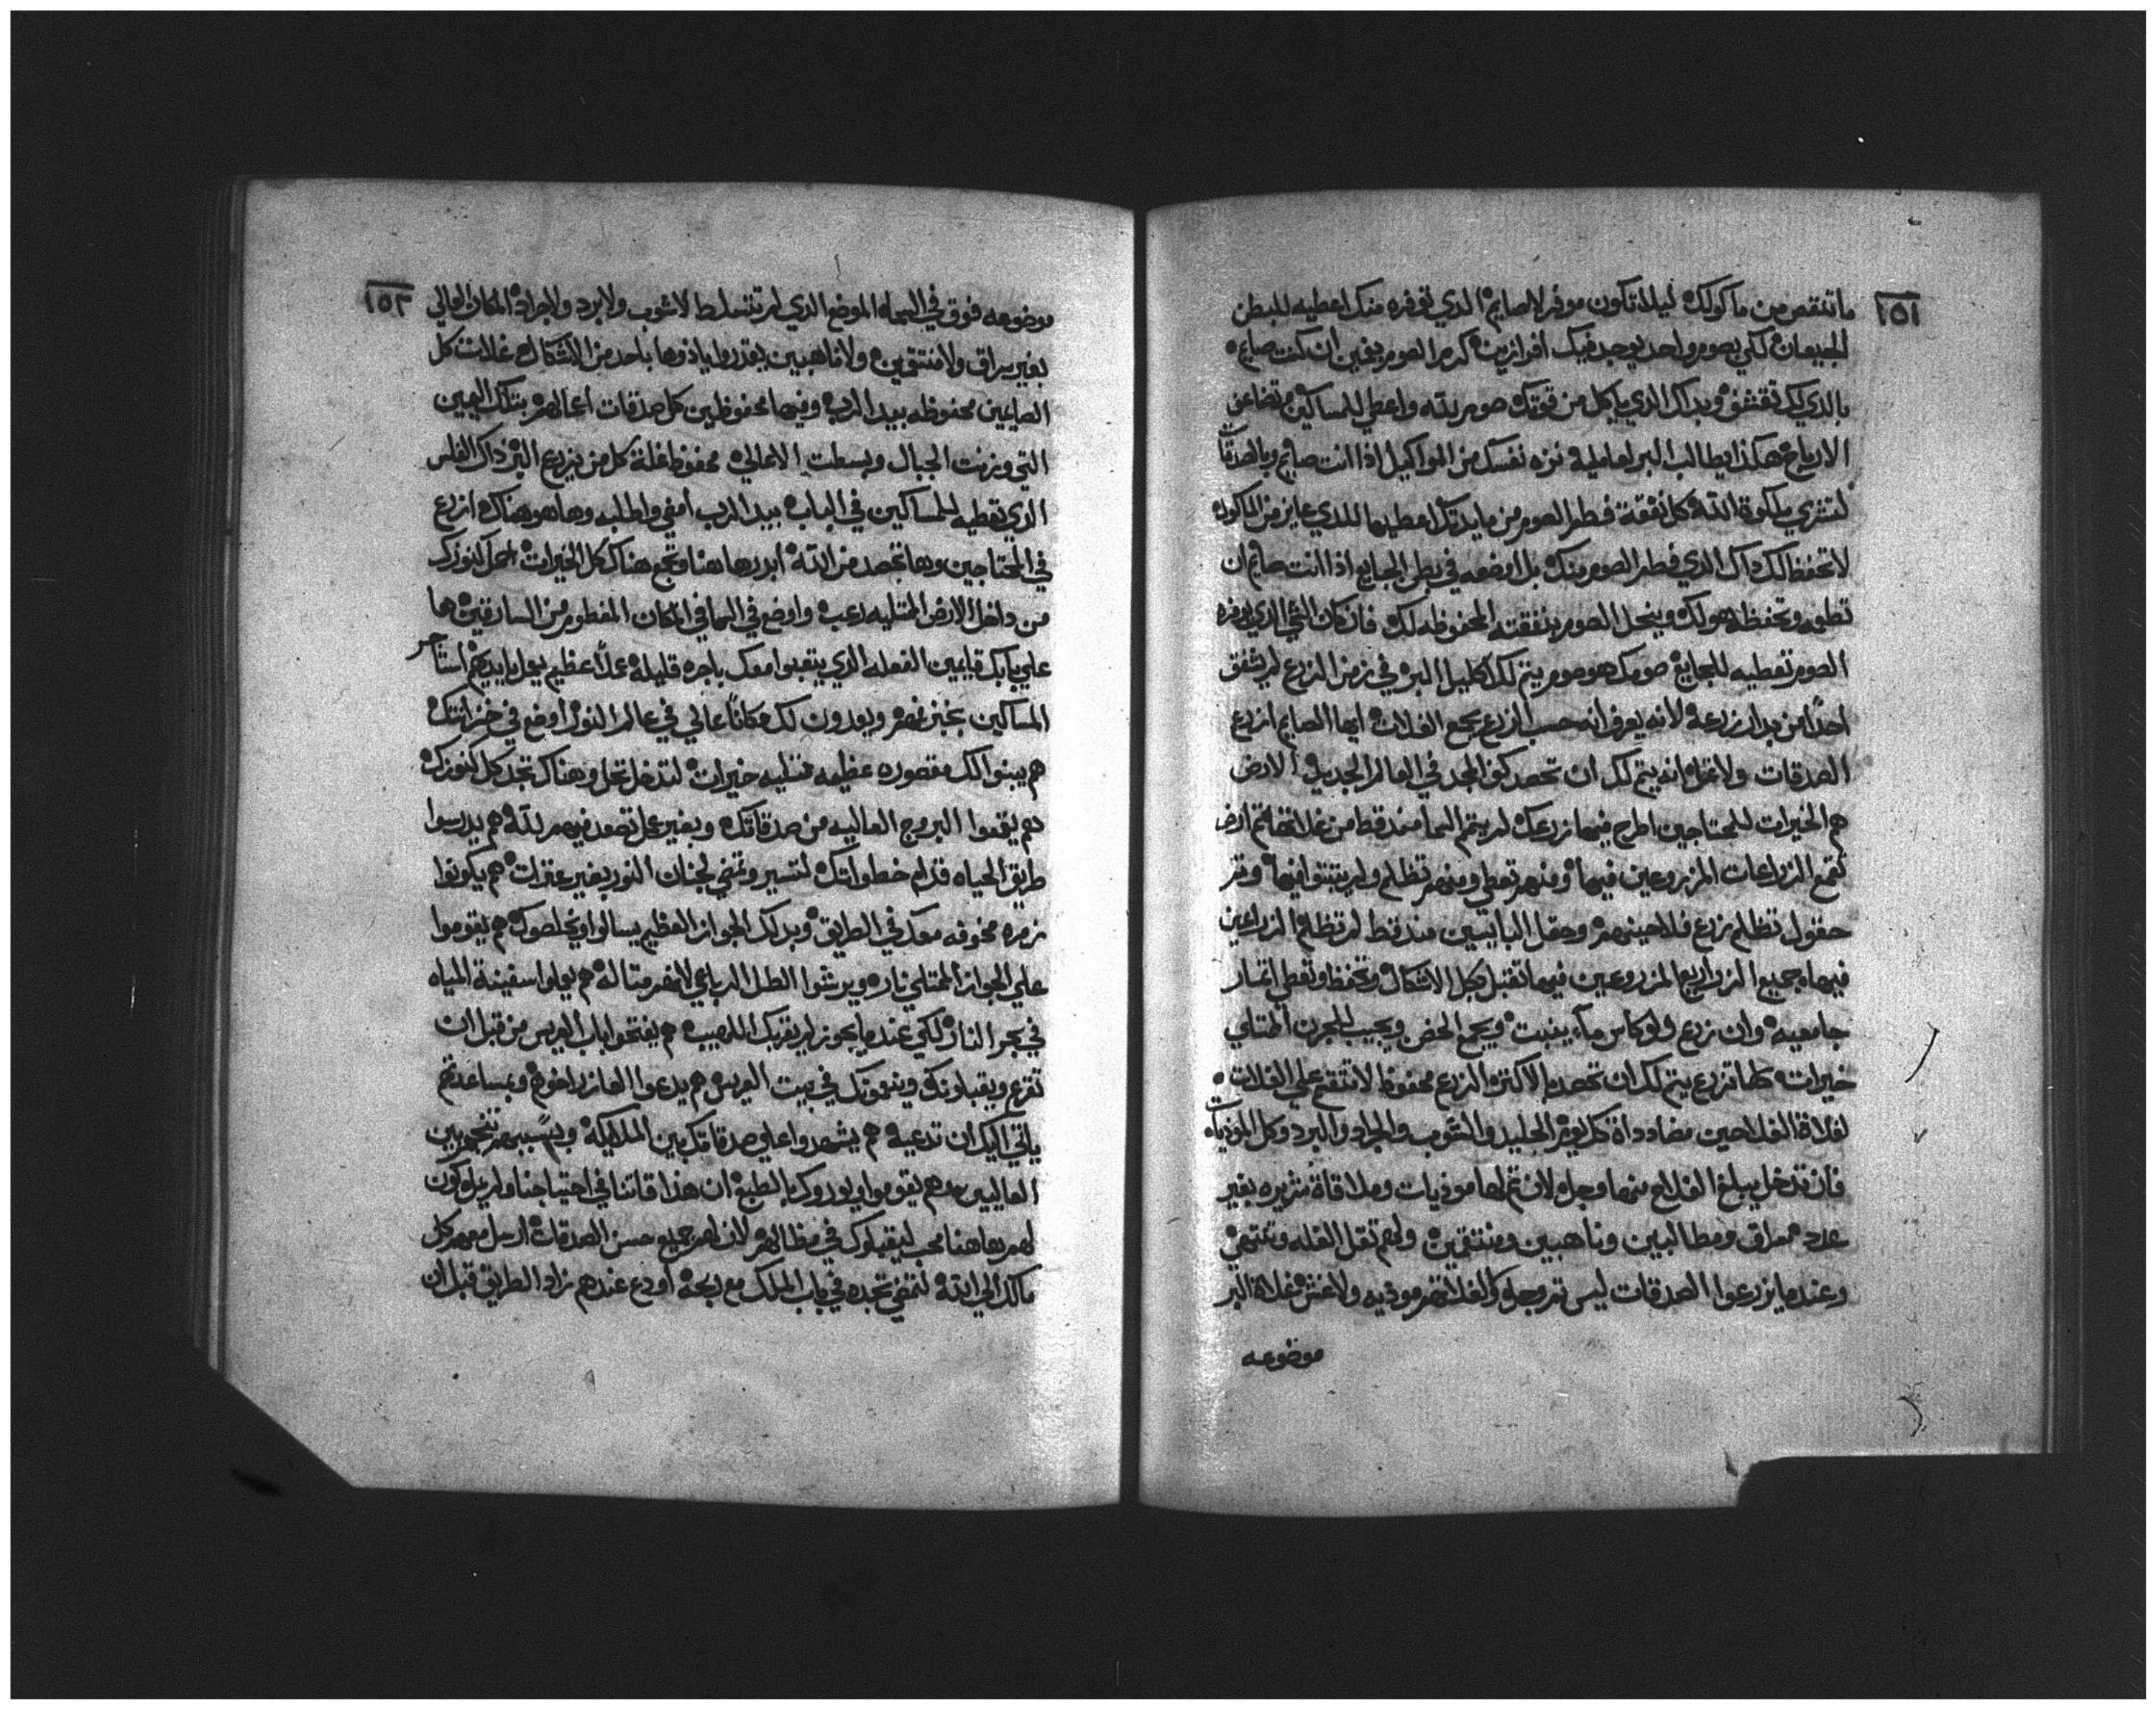 ١٥٢
ما تنقص من ماكولك ليلا تكون موفر لا صايم الدي توفره منك اعطيه للبطن
الجيعان لكي بصوم واحد يوجد فيك افرازين كرم الصوم يفين ان كنت صايم
بالدي لك تقشف وبداك الدي ياكل من قوتك صوم لله واعطي للمساكين وتضاعف
الارباح هكذا يطالب البر لعامليه نزه نفسك من المواكيل اذا انت صايم وبالصدقات
لتشري ملكوة الله كل نفقة فطر الصوم من مايدتك اعطيها للدي عايز من الماكول
لا تحفظ لك داك الدي فطر الصوم منك بل اوضعه في بطن الجايع اذا انت صايم ان
تطمه وتحفظه هو لك وينحل الصوم بنفقته المحفوظه لك فان كان الشي الدي يوفره
الصوم تعطيه للجايع صومك هو صوم يتم لك اكليل البر في زمن الزرع لم يشفق
احدًا من بدار زرعه لانه يعرف انه حسب الزرع يجمع الغلات ايها الصايم ازرع
الصدقات ولا تمل انه يتم لك ان تحصد كف المجد في العالم الجديد الارض
هم الخيرات للمحتاجين اطرح فيها زرعك لم يتم الما منذ قط من غلاتها تم ارض
تقمع الزراعات المزروعين فيها ومنهم تعطي ومنهم تظلم ولم ينبتوا فيها وتم
حقول تظلم زرع فلاحينهم وحقل البايسين منذ قط لم تظلم الزراعين
فيها جميع الزواريع المزروعين فيها تقبل بكل الاشكال وتحفظ وتعطي اتمار
جامعيه وان زرع ولو كاس ماء ينبت ويجمع الحض ويجيب للجرن امتلي
خيرات كلما تزرع يتم لك ان تحصد الاكتره الزرع محفوظ لا تفتقع علي الغلات
لغلاة الفلاحين مضادداة كل يوم الجليد والشوب والجراد والبرد وكل الموذيات
فان تدخل يبلغ الفلاح منها وجله لان تم لها موذيات وملاقاة شريره بغير
عدد سراق ومطالبين وناهبين ومنتقين ولهم تقل الغله وتنتهي
وعندما يزرعوا الصدقات ليس تم وجله ولغلاتهم موذيه ولا غش غلاة البر
موضوعه
١٥٣
موضوعه فوق في السما الموضع الدي لم تتسلط لا شوب ولا برد ولا جراد المكان العالي
بغير سراق ولا منتقين ولا ناهبين يقدروا ياذوها باحد من الاشكال غلات كل
الصايمين محفوظه بيد الرب وفيها محفوظين كل صدقات اعمالهم بتلك اليمين
التي وزنت الجبال وبسطت الاعالي محفوظ غلة كل من يزرع البر داك الفلس
الدي تعطيه للمساكين في الباب بيد الرب امضي واطلبه وها هو هناك ازرع
في المحتاجين وها تحصد من الله ابدرها هنا وتجمع هناك كل الخيرات احمل كنوزك
من داخل الارض الممتليه رعب واوضع في السما في المكان المفطوم من السارقين ها
علي بابك قايمين الفعله الدي يتعبوا معك باجره قليله عملاً عظيم يعملوا بايديهم استاجر
المساكين بخبزهم ويعدون لك مكاناً عالي في عالم النور اوضع في خزانتك
هم يبنوا لك مقصوره عظيمه ممتليه خيرات لتدخل تحل وهناك تجد كل كنوزك
هم يقعوا البروج العاليه من صدقاتك وبغير عمل تصعد فيهم لله هم يدرسوا
طريق الحياه قدام خطواتك لتسير وتمضي لجنان النور بغير عترات هم يكونوا
زمره مخوفه معك في الطريق وبدلك الجواز العظيم يسالوا ويخلصوك هم يقوموا
علي الجواز الممتلي نار ويرشوا الطل الرباعي لانهم متاله هم يعملوا سفينة المياه
في بحر النار لكي عندما يجوز لم يقربك اللهيب هم يفتحوا باب العريس من قبل ان
تقرع ويقبلونك وينموك في بيت العريس هم يدعوا العازر اخوهم وبمساعدتهم
ياتي اليك ان تدعيه هم يشهدوا علي صدقاتك بين الملايكه وبسببهم تنجو بين
العاليين وهم يقوموا ويوروك بالطبع ان هذا قاتنا في احتياجنا ولم يملوكون
لهم ها هنا محب ليقبلوك في مظالهم لان لهم جميع حسن الصدقات ارسل معهم كل
مالك الي الله لتمضي تجده في باب الملك مع ربحه اودع عندهم زاد الطريق قبل ان